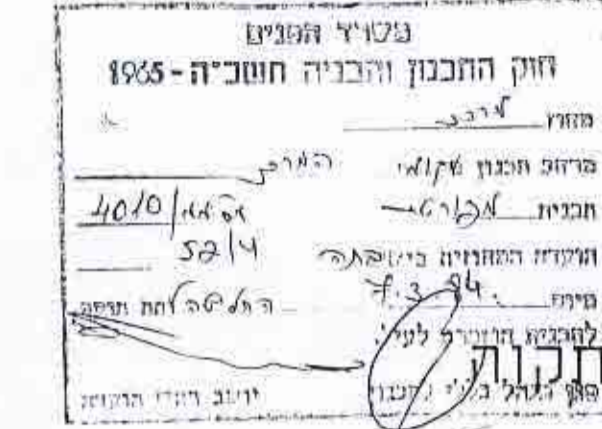 משרד הפנים
חוק התכנון והבניה תשכ"ה - 1965
מחוז מרכז
מרחב תכנון מקומי המרכז
תכנית מפורטת 40/0
הועדה המחוזית בישיבתה 52/4
מיום 7.3.94 החליטה לתת תוקף
לתכנית הנזכרת לעיל.
תקות
יושב ראש הועדה